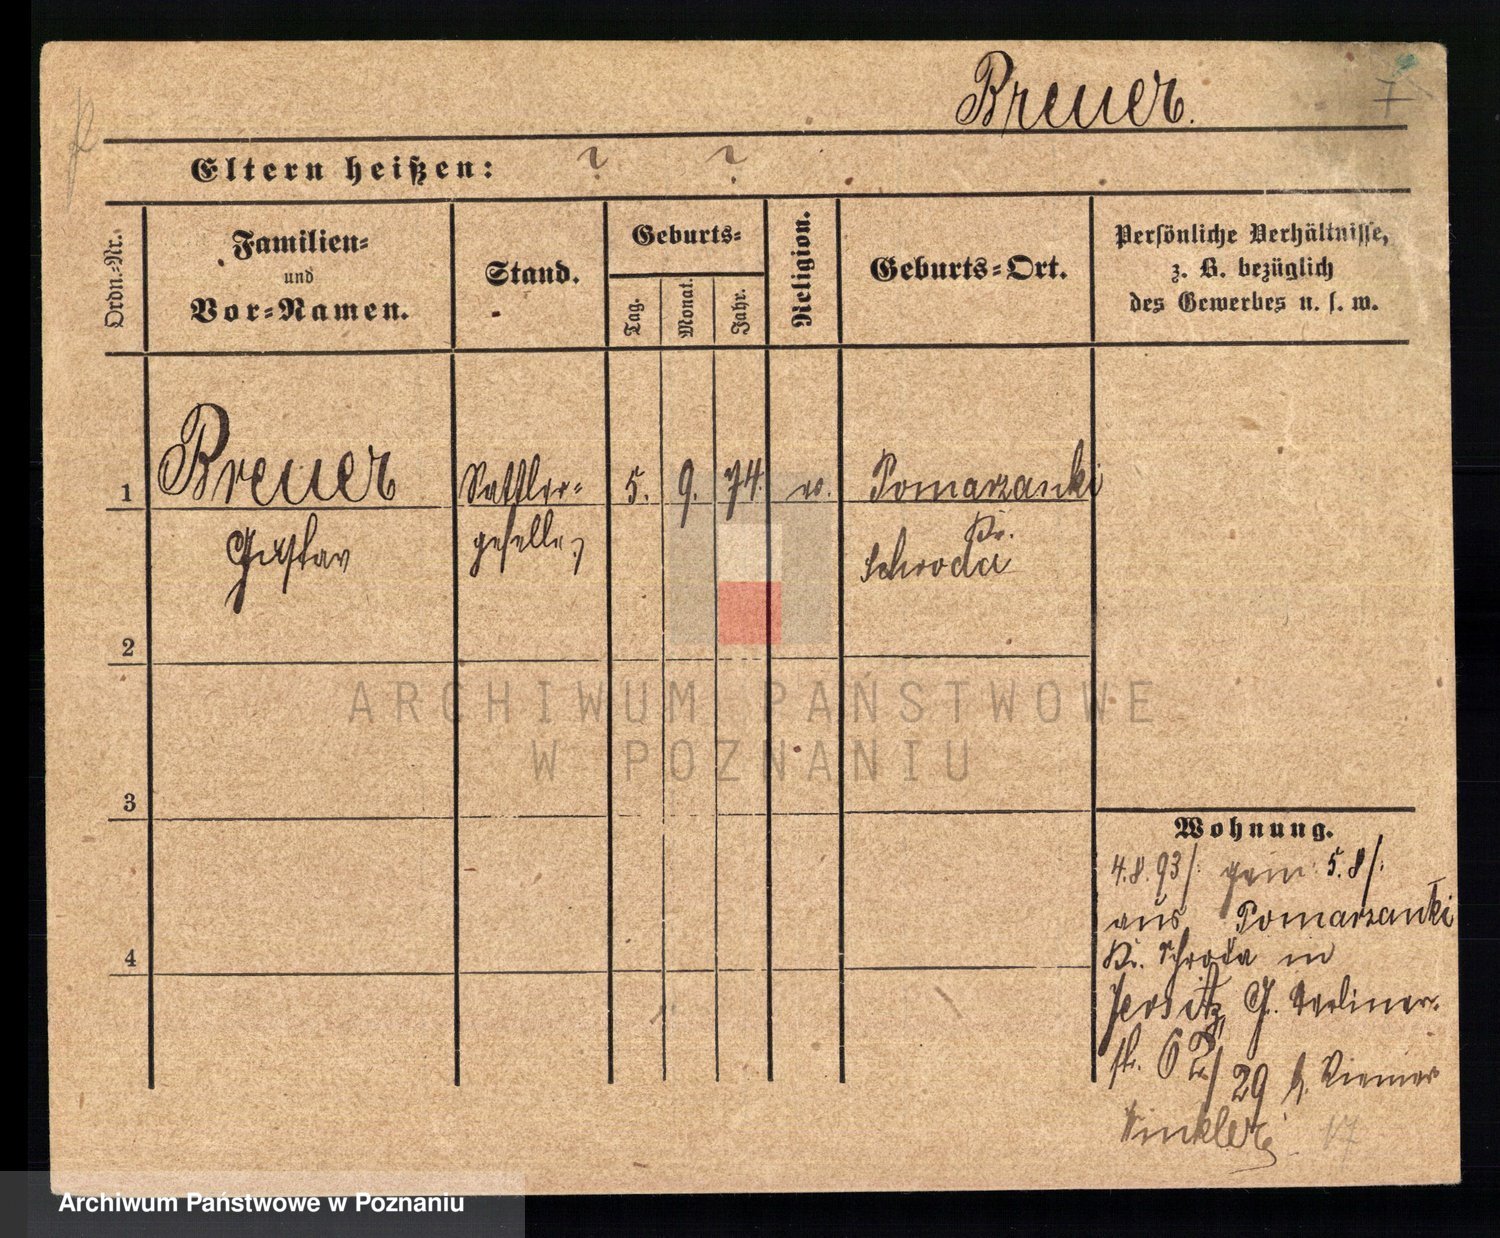 Breuer.
7
Eltern heißen: ? ?
Ordn.-Nr.
Familien-
und
Vor-Namen.
Stand.
Geburts-
Tag.
Monat.
Jahr.
Religion.
Geburts-Ort.
Persönliche Verhältnisse,
z. B. bezüglich
des Gewerbes u. s. w.
1
Breuer
Gustav
Sattler-
geselle
5.
9.
74.
Pomarzanki
Kr.
Schroda
2
3
4
Wohnung.
4.8.93/. gem 5.8/.
aus Pomarzanki
Kr. Schroda in
Jersitz, G. Berliner-
str. 62/29 b. Riemer
Winkler
17
ARCHIWUM PAŃSTWOWE
W POZNANIU
Archiwum Państwowe w Poznaniu